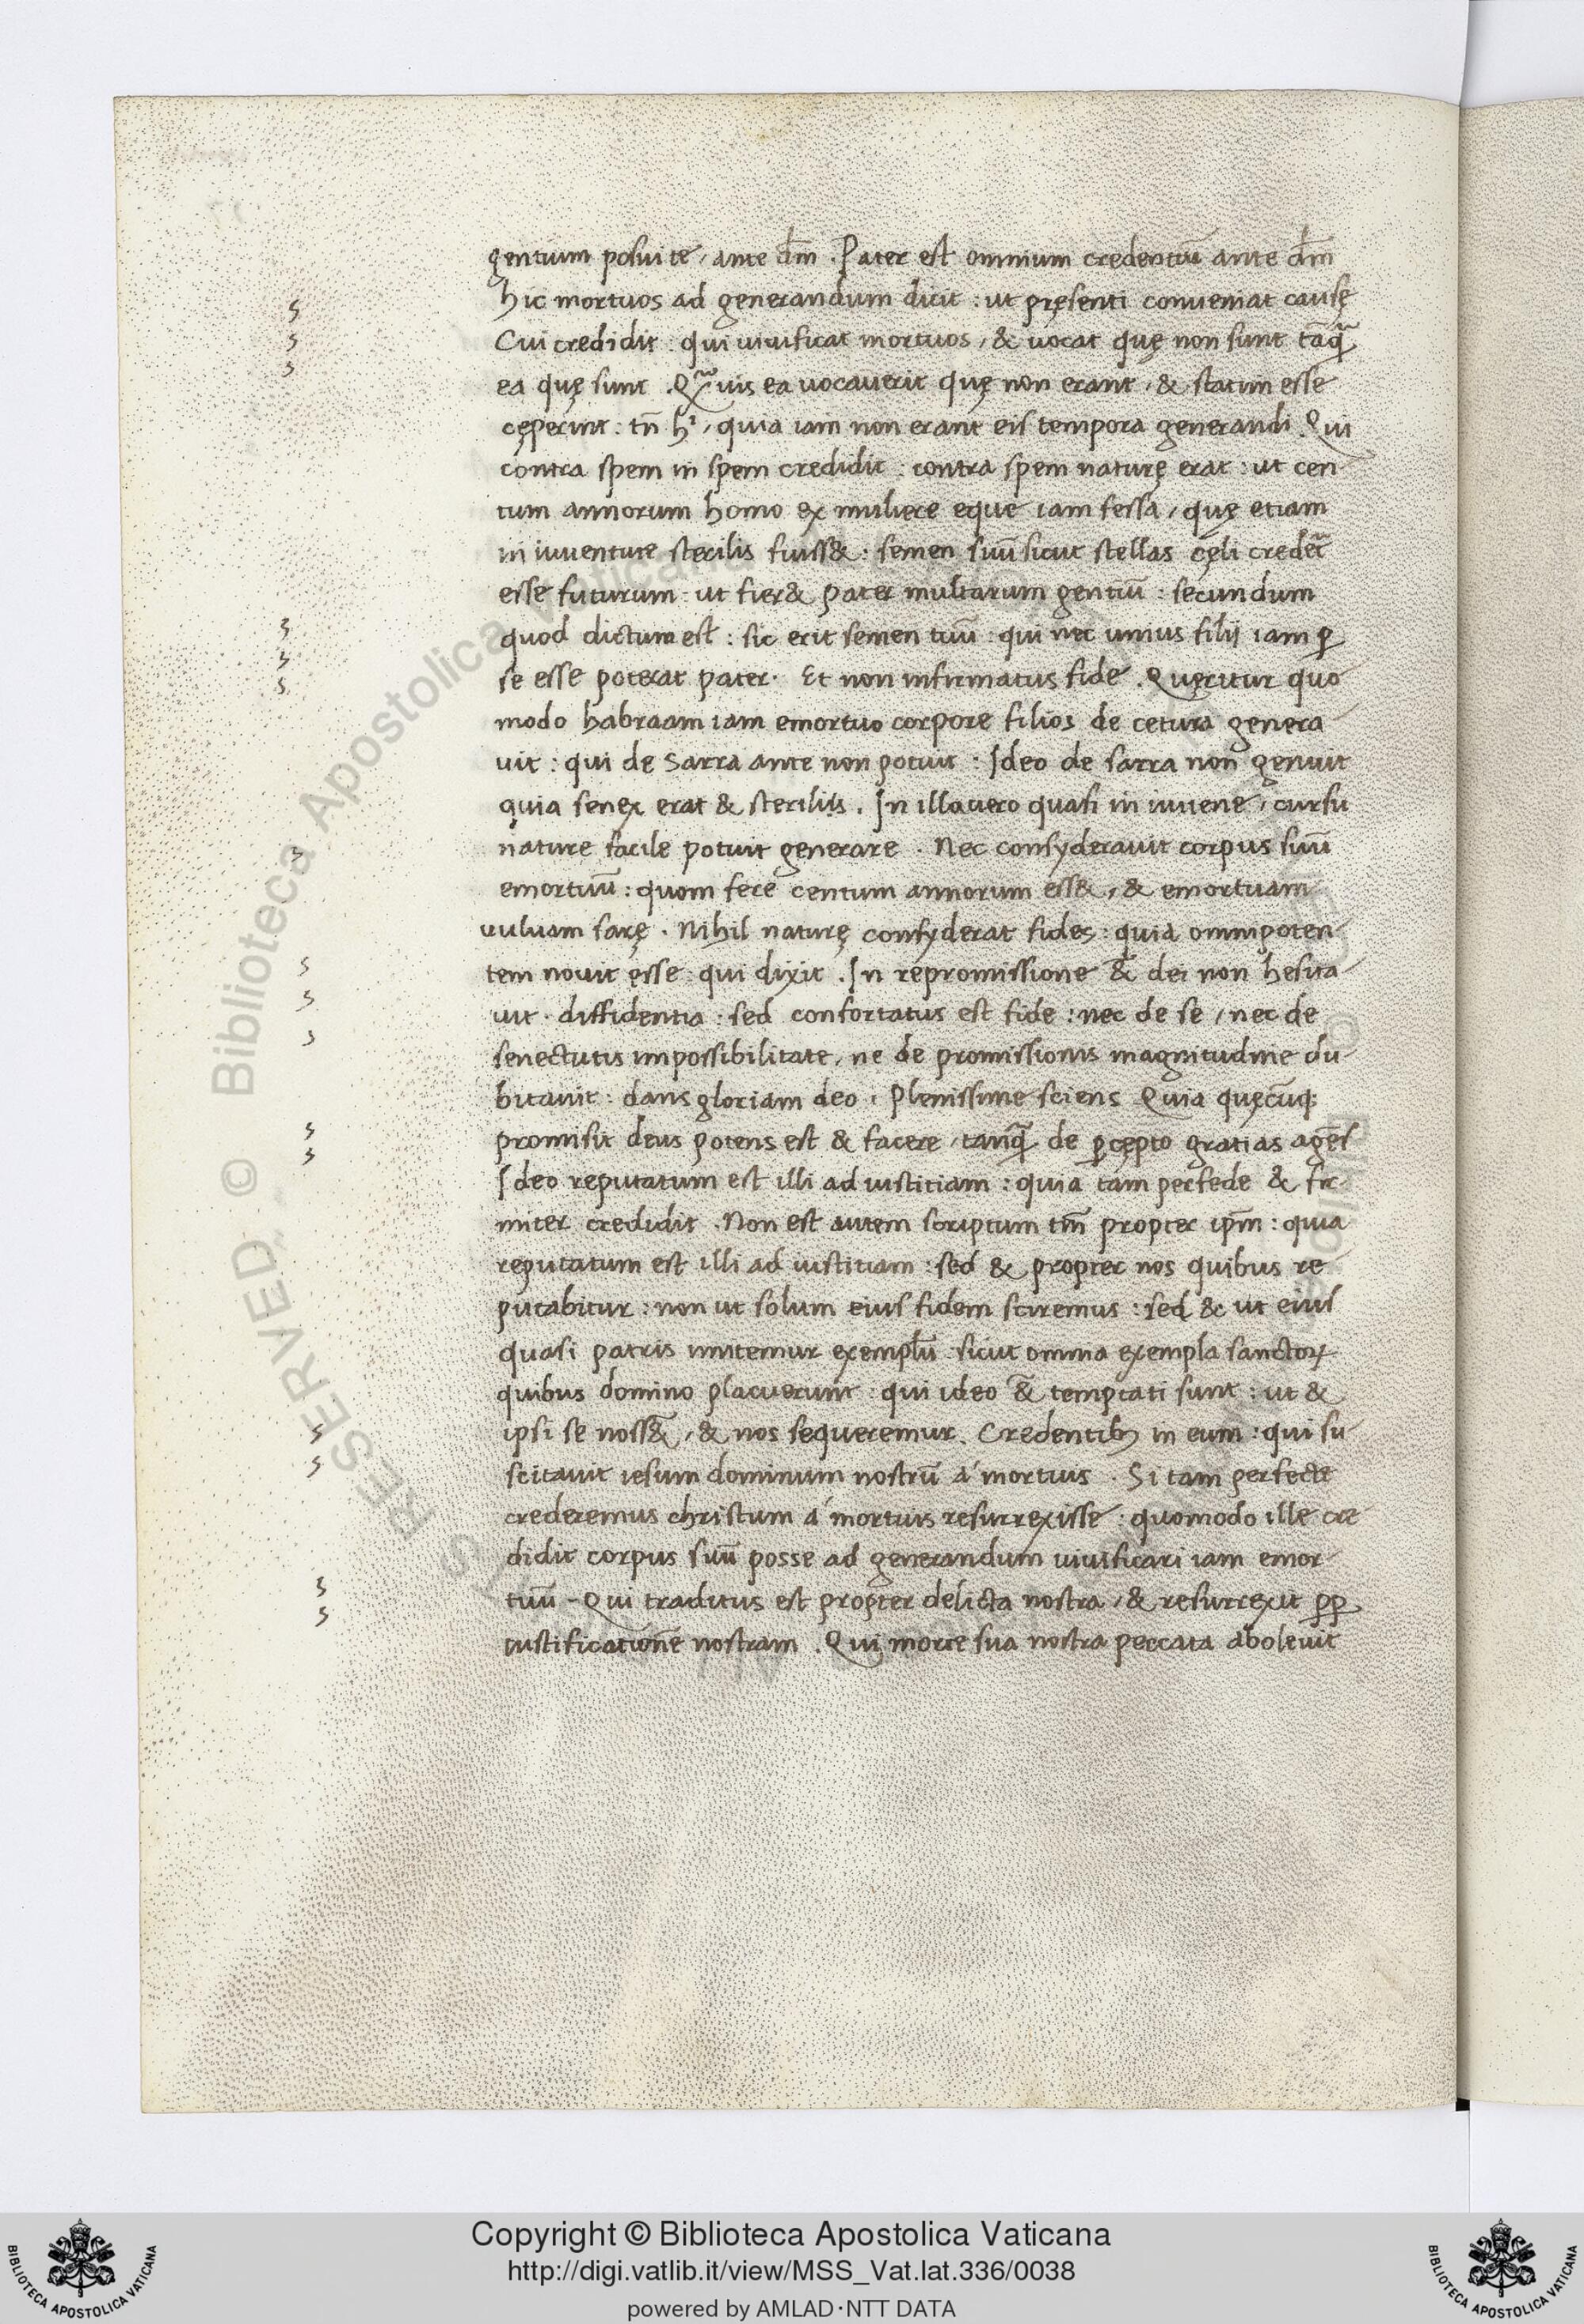 gentium posui te, ante dm̄. Pater est omnium credentiū ante dm̄
hic mortuos ad generandum dicit: ut pręsenti conueniat causę
Cui credidit: qui uiuificat mortuos, & uocat quę non sunt tāq̃
ea quę sunt. Q̃uis ea uocauerit quę non erant, & statim esse
cęperint: tn̄ hⁱ, quia iam non erant eis tempora generandi. Qui
contra spem in spem credidit: contra spem naturę erat: ut cen
tum annorum homo ex muliere eque iam fessa, quę etiam
in iuuentute sterilis fuiss&: semen suū sicut stellas cęli crederet̃
esse futurum: ut fier& pater multarum gentiū: secundum
quod dictum est: sic erit semen tuū: qui nec unius filij iam ꝑ
se esse poterat pater. Et non infirmatus fide. Quęritur quo
modo habraam iam emortuo corpore filios de cetura genera
uit: qui de Sarra ante non potuit: Ideo de sarra non genuit
quia senex erat & sterilis. In illa uero quasi in iuuene, cursu
nature facile potuit generare. Nec consyderauit corpus suū
emortuū: quom fere centum annorum ess&, & emortuam
uuluam sarę. Nihil naturę consyderat fides: quia omnipoten
tem nouit esse: qui dixit. In repromissione &̃ dei non hesita
uit. diffidentia: sed confortatus est fide: nec de se, nec de
senectutis impossibilitate, ne de promissionis magnitudine du
bitauit: dans gloriam deo. Plenissime sciens Quia quęcūq;
promisit deus potens est & facere, tanq̃ de ꝑcępto gratias agēs
Ideo reputatum est illi ad iustitiam: quia tam perfede & fir
miter credidit. Non est autem scriptum tm̄ propter ipm̄: quia
reputatum est illi ad iustitiam: sed & propter nos quibus re
putabitur: non ut solum eius fidem sciremus: sed & ut eius
quasi patris imitemur exemplū: sicut omnia exempla sanctoꝝ
quibus domino placuerunt: qui ideo &̃ temptati sunt: ut &
ipsi se noss&̃, & nos sequeremur. Credentibꝫ in eum: qui su
scitauit iesum dominum nostrū á mortuis. Si tam perfecte
crederemus christum á mortuis resurrexisse: quomodo ille cre
didit corpus suū posse ad generandum uiuificari iam emor
tuū. Qui traditus est propter delicta nostra, & resurrexit ꝓꝑ
iustificationē nostram. Qui morte sua nostra peccata aboleuit
© Biblioteca Apostolica Vaticana
RESERVED
Copyright © Biblioteca Apostolica Vaticana
http://digi.vatlib.it/view/MSS_Vat.lat.336/0038
powered by AMLAD·NTT DATA
BIBLIOTECA APOSTOLICA VATICANA
BIBLIOTECA APOSTOLICA VATICANA